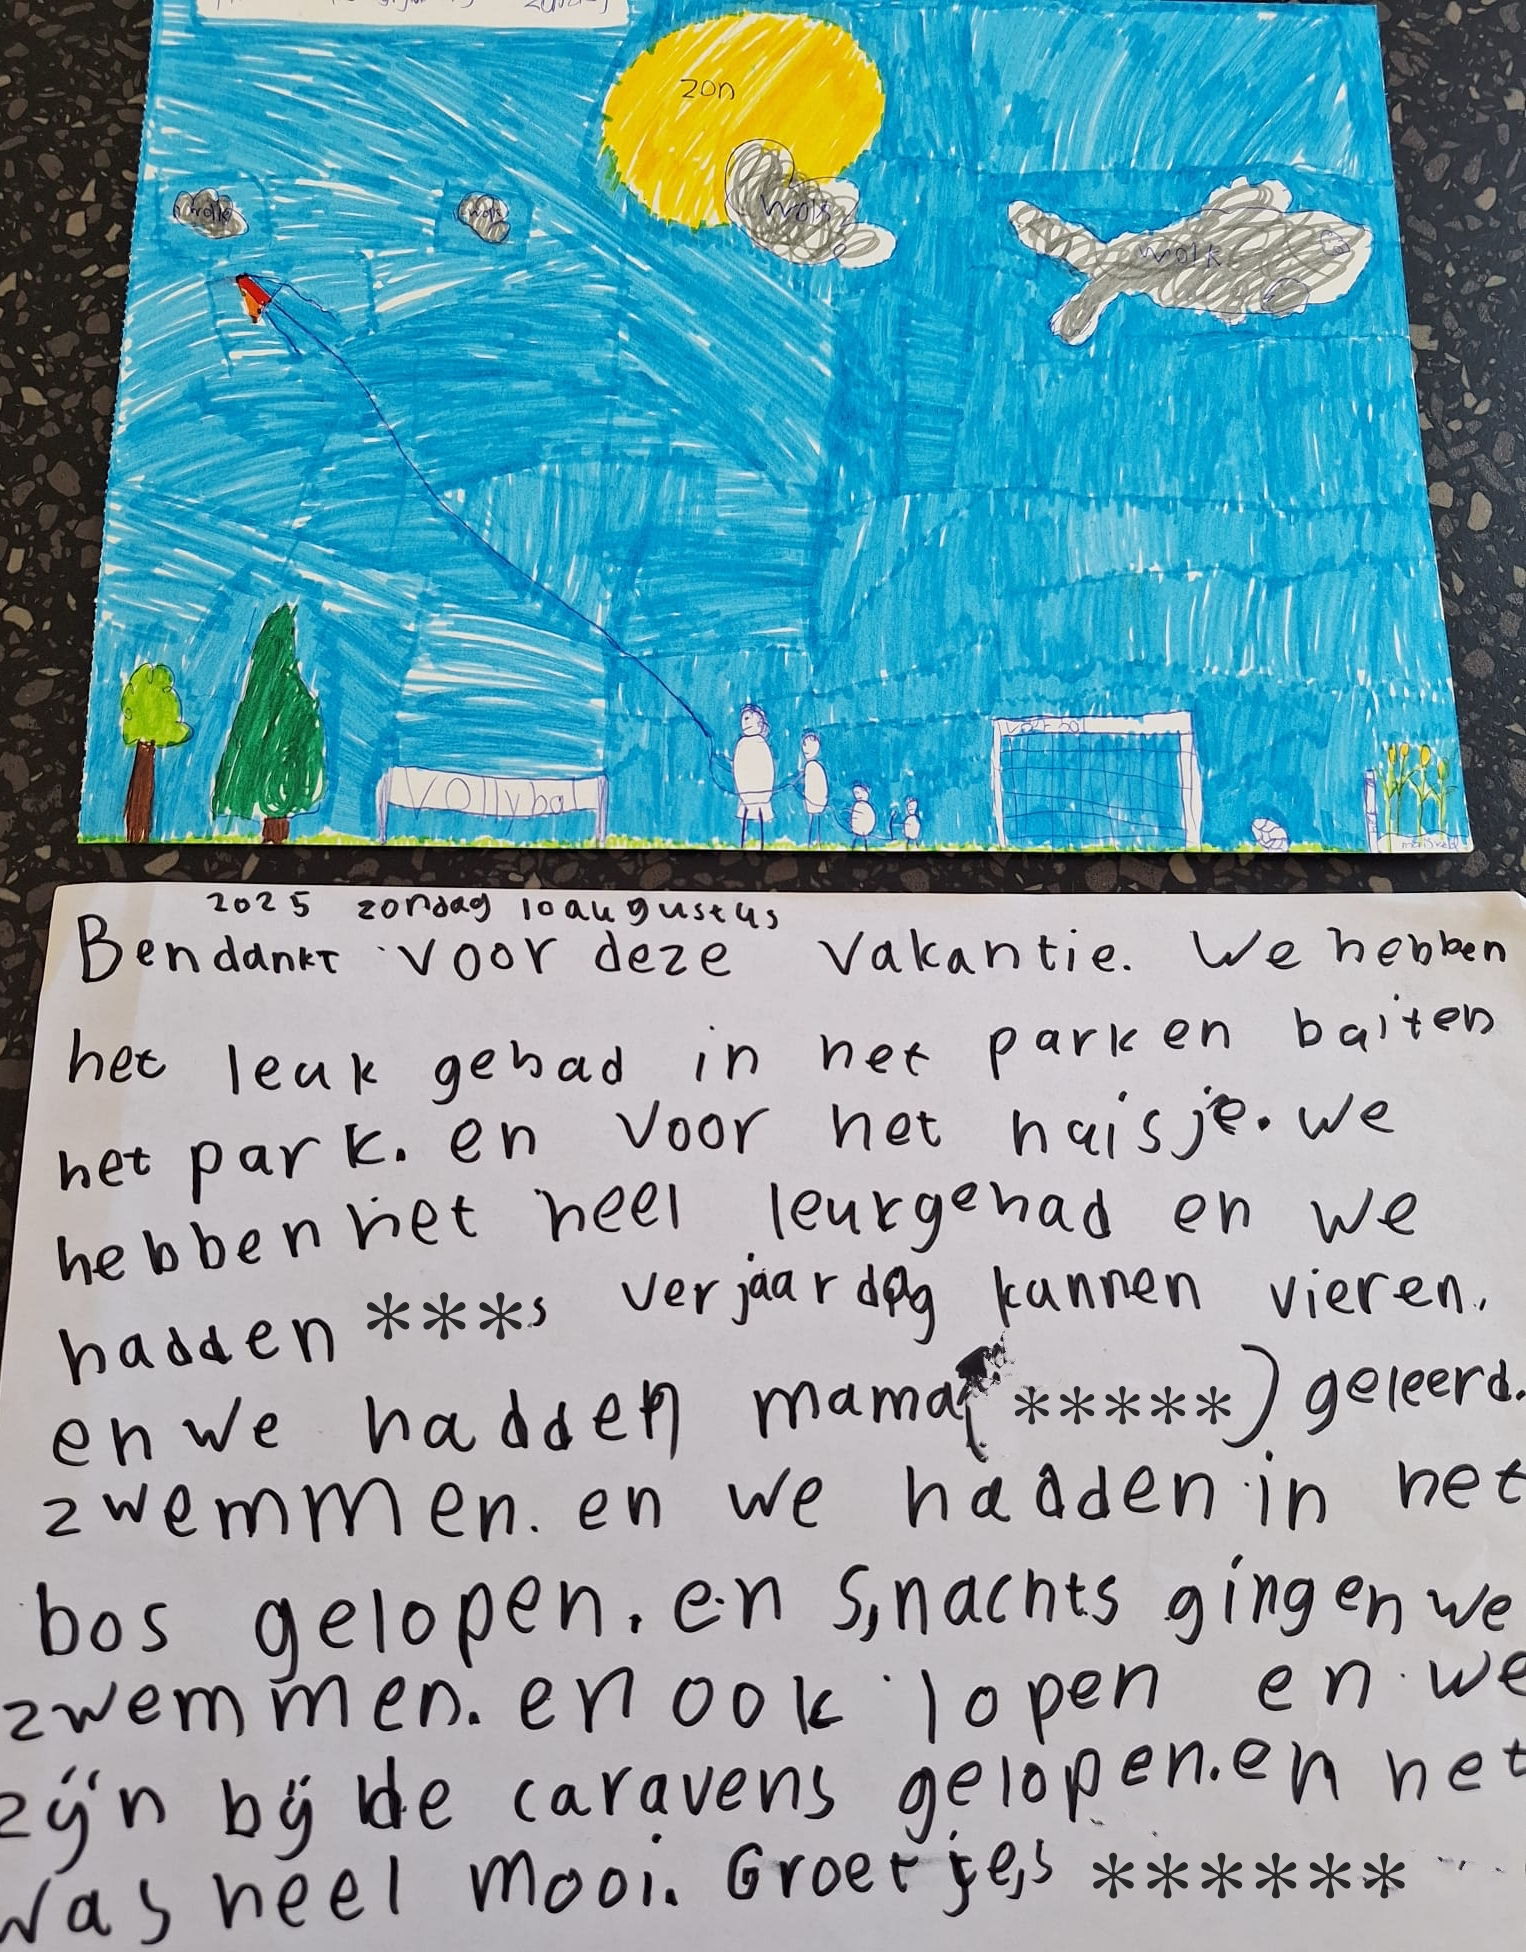 zon
wolk
wolk
wolk
wolk
vollybal
2025 zondag 10 augustus
Bendankt voor deze vakantie. We hebben
het leuk gehad in het park en baiten
het park. en voor het haisje. we
hebben het heel leuk gehad en we
hadden ***s verjaardag kannen vieren.
en we hadden mama(*****) geleerd.
zwemmen. en we hadden in het
bos gelopen. en s,nachts gingen we
zwemmen. en ook lopen en we
zijn bij de caravens gelopen. en het
was heel mooi. Groetjes ******